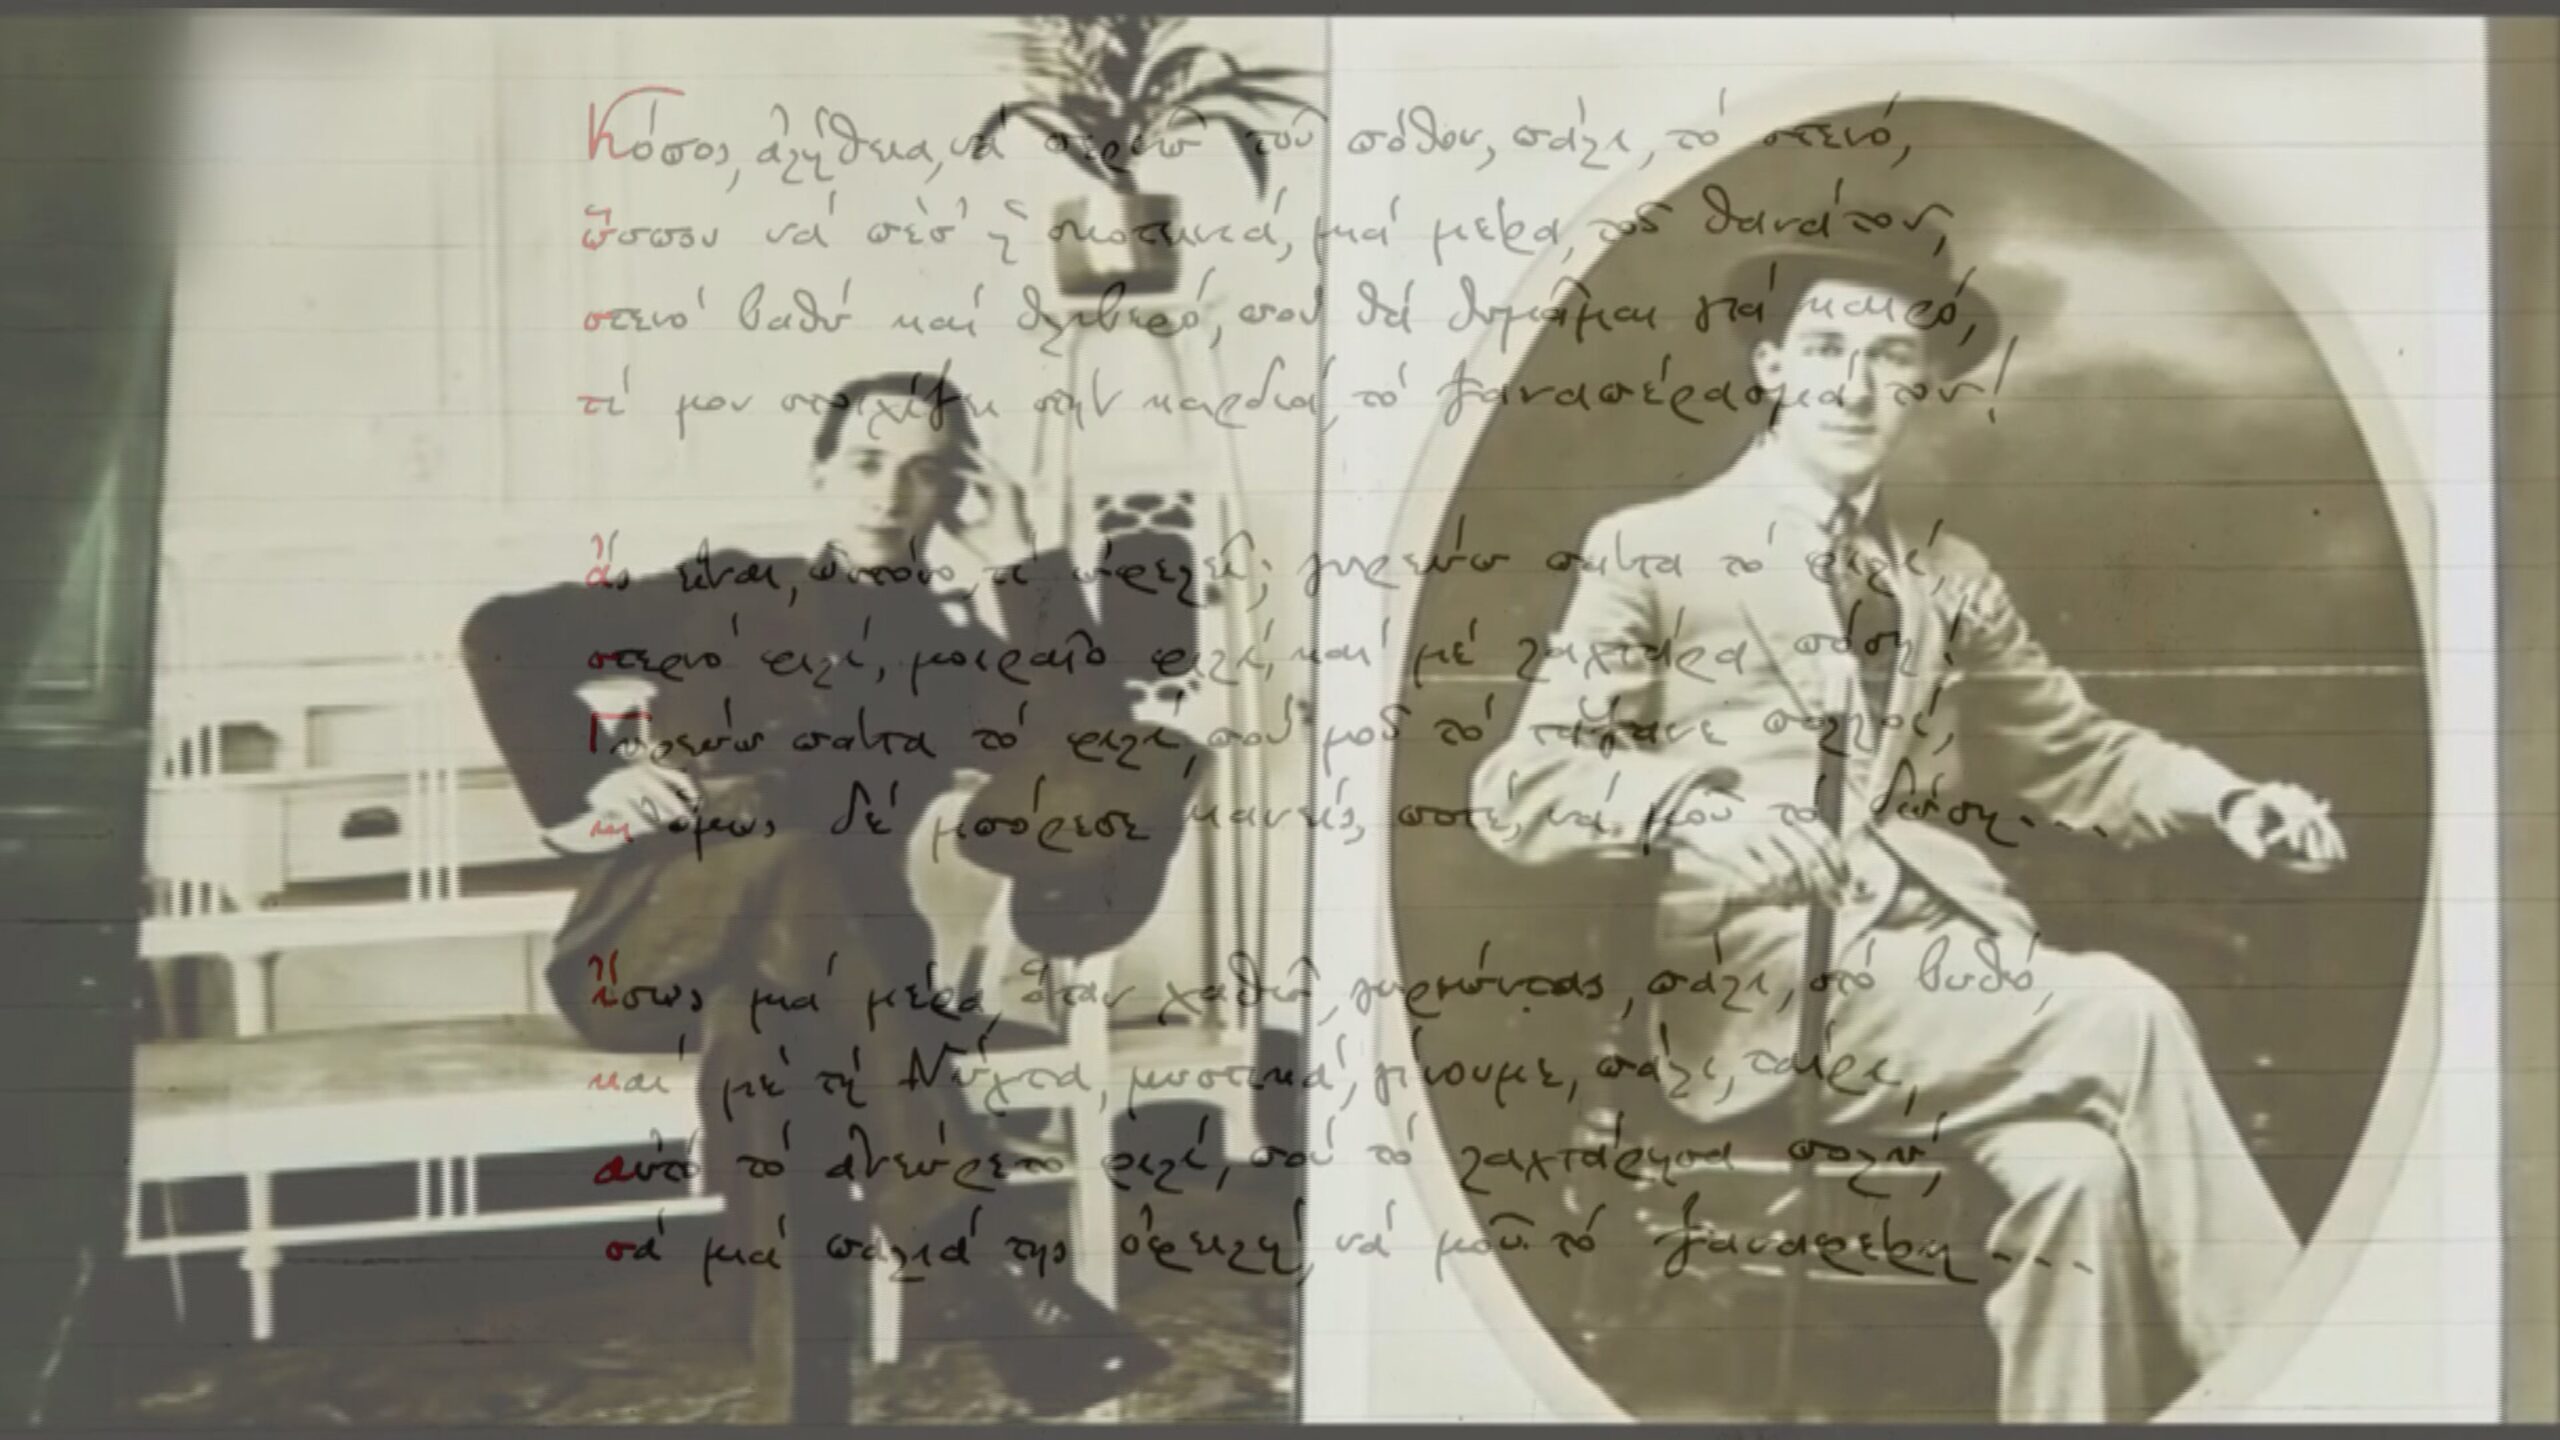 Κόπος, ἀλήθεια, νά περνῶ τοῦ πόθου, πάλι, τό στενό,
ὥσπου νά πέσ' ἡ σκοτεινιά, μιά μέρα, τοῦ θανάτου,
στενό βαθύ καί θλιβερό, πού θά θυμᾶμαι γιά καιρό,
τί μου στοιχίζει στήν καρδιά, τό ξαναπέρασμά του!
Ἄς εἶναι, ὡστόσο, τί ὠφελεῖ; γυρεύω πάντα τό φιλί,
στερνό φιλί, μοιραῖο φιλί, καί μέ λαχτάρα πόση!
Γυρεύω πάντα τό φιλί, πού μοῦ τό τάξανε πολλοί,
κι ὅμως δέ μπόρεσε κανείς, ποτέ, νά μοῦ τό δώση....
Ἴσως μιά μέρα, ὅταν χαθῶ, γυρνώντας, πάλι, στό βυθό,
καί μέ τή Νύχτα, μυστικά, γίνουμε, πάλι, ταίρι,
αὐτό τό ἀνεύρετο φιλί, πού τό λαχτάρησα πολύ,
σά μιά παλιά της ὀφειλή, νά μοῦ τό ξαναφέρη....